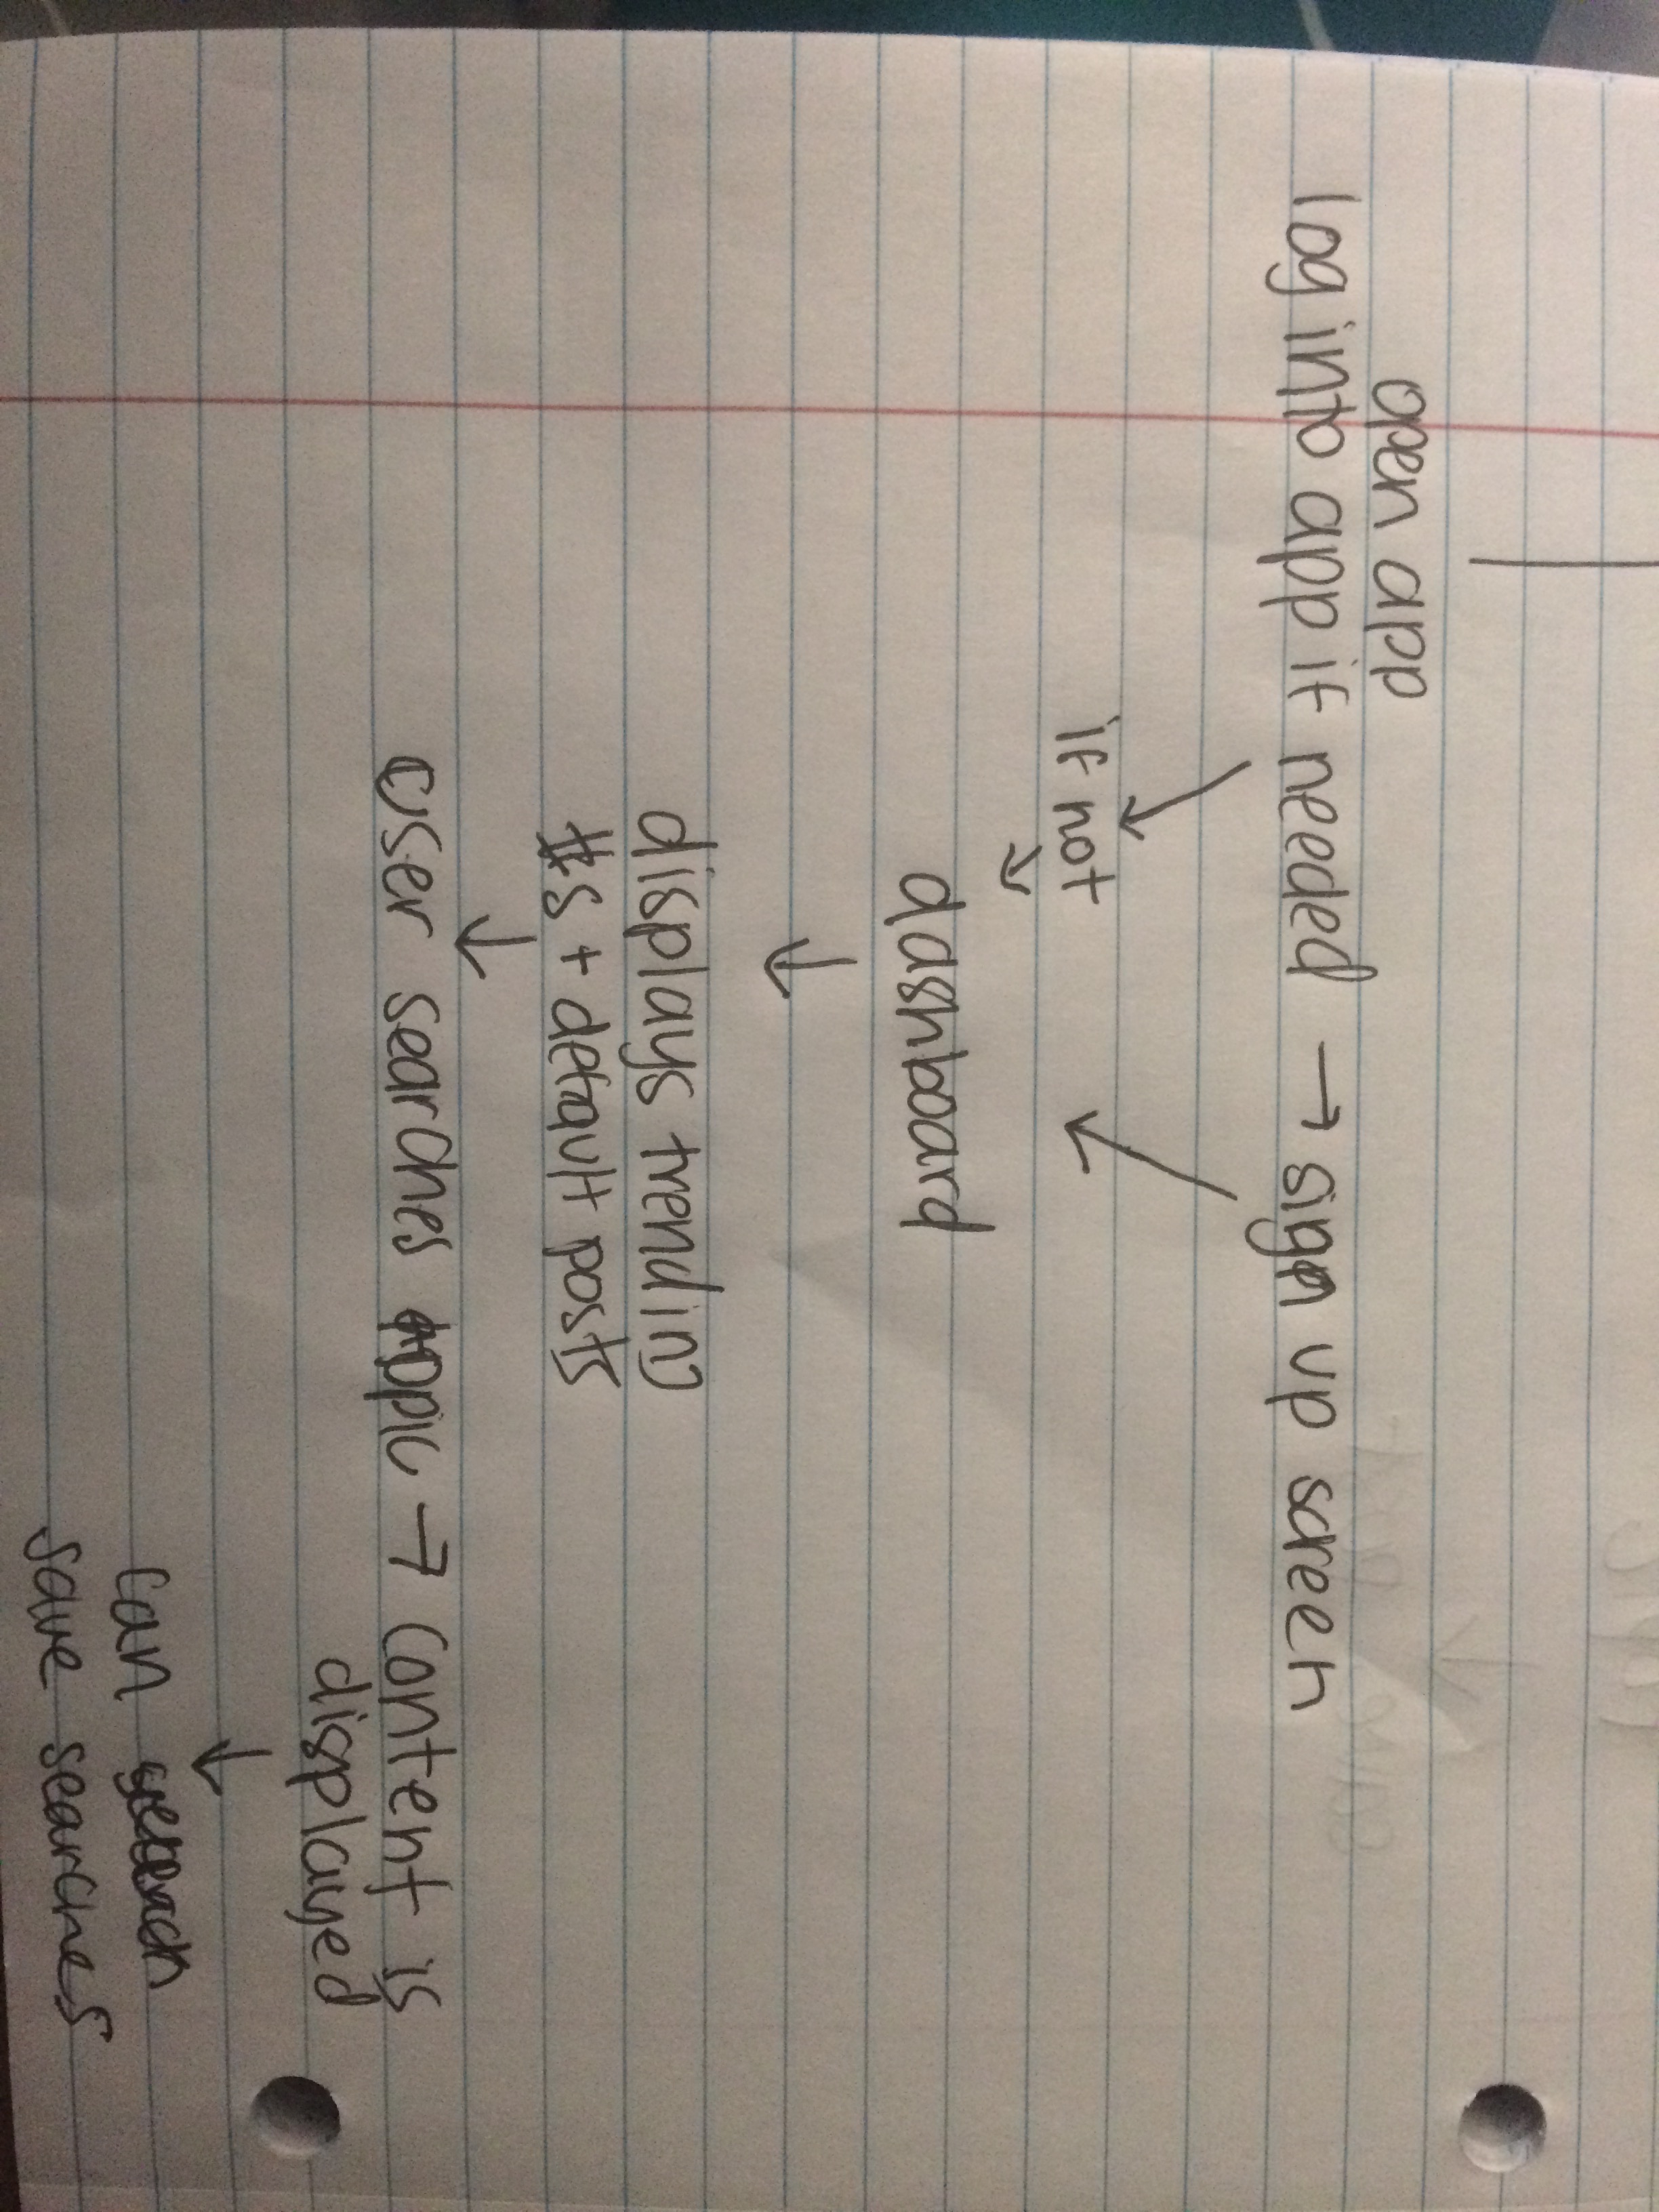 open app
log into app if needed → sign up screen
if not
dashboard
displays trending
#s + default posts
user searches topic → content is
displayed
can
save searches